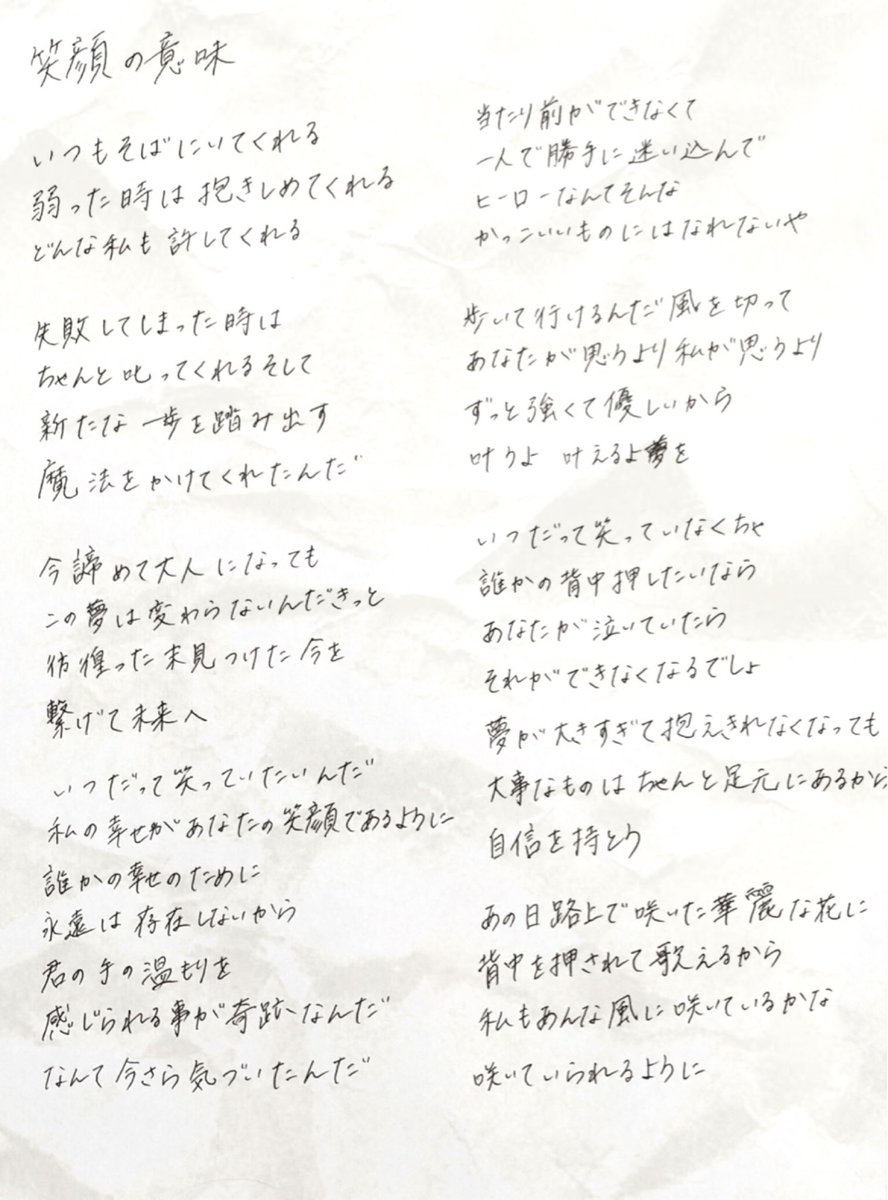 笑顔の意味
いつもそばにいてくれる
弱った時は抱きしめてくれる
どんな私も許してくれる
失敗してしまった時は
ちゃんと叱ってくれるそして
新たな一歩を踏み出す
魔法をかけてくれたんだ
今諦めて大人になっても
この夢は変わらないんだきっと
彷徨った末見つけた今を
繋げて未来へ
いつだって笑っていたいんだ
私の幸せがあなたの笑顔であるように
誰かの幸せのために
永遠は存在しないから
君の手の温もりを
感じられる事が奇跡なんだ
なんて今さら気づいたんだ
当たり前ができなくて
一人で勝手に迷い込んで
ヒーローなんてそんな
かっこいいものにはなれないや
歩いて行けるんだ風を切って
あなたが思うより私が思うより
ずっと強くて優しいから
叶うよ 叶えるよ夢を
いつだって笑っていなくちゃ
誰かの背中押したいなら
あなたが泣いていたら
それができなくなるでしょ
夢が大きすぎて抱えきれなくなっても
大事なものはちゃんと足元にあるから
自信を持とう
あの日路上で咲いた華麗な花に
背中を押されて歌えるから
私もあんな風に咲いているかな
咲いていられるように